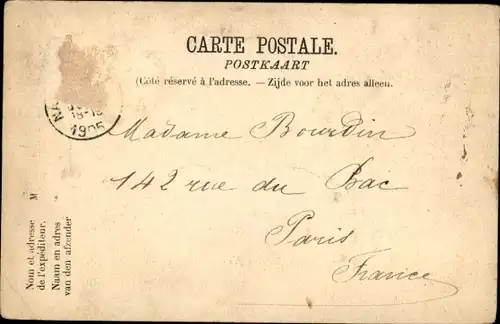 CARTE POSTALE.
POSTKAART
(Côté réservé à l'adresse. — Zijde voor het adres alleen.
NA
18-19
1905
Madame Bourdin
142 rue du Bac
Paris
France
Nom et adresse M
de l'expéditeur.
Naam en adres
van den afzender